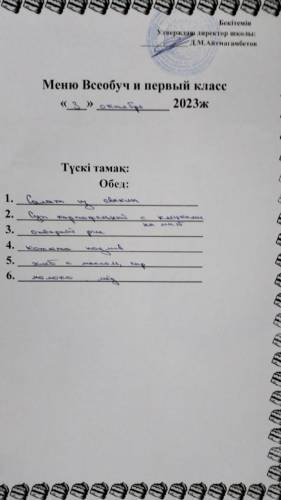 Бекітемін
Утверждаю директор школы:
Д.М.Айтмагамбетов
Меню Всеобуч и первый класс
« 3 » октября 2023ж
Түскі тамақ:
Обед:
1. Салат из свеклы
2. Суп картофельный с клецками
3. отварной рис
4. котлета
5. хлеб с маслом, сыр
6. молоко мёд